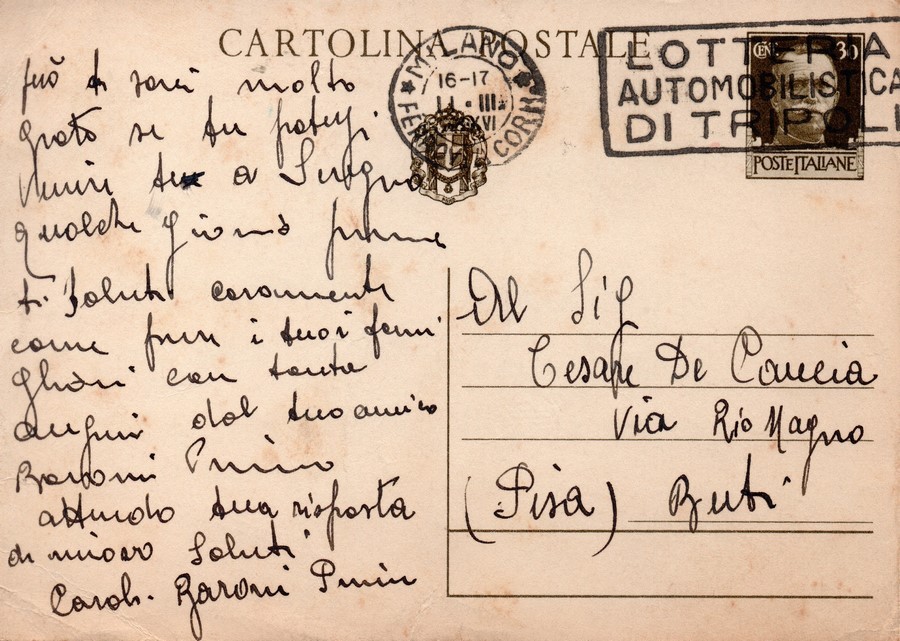 CARTOLINA POSTALE
MILANO
16-17
II · III
XVI
FERROVIA CORR
LOTTERIA
AUTOMOBILISTICA
DI TRIPOLI
CEN 30
POSTE ITALIANE
può ti sarei molto
grato se tu potessi
venire a
qualche giorno
ti saluto caramente
come pure i tuoi fami
gliari con tanti
auguri dal tuo amico
Baroni Primo
attendo tua risposta
di nuovo saluti
Carab. Baroni Primo
Al Sig
Cesare De
Via Rio Magno
(Pisa) Buti